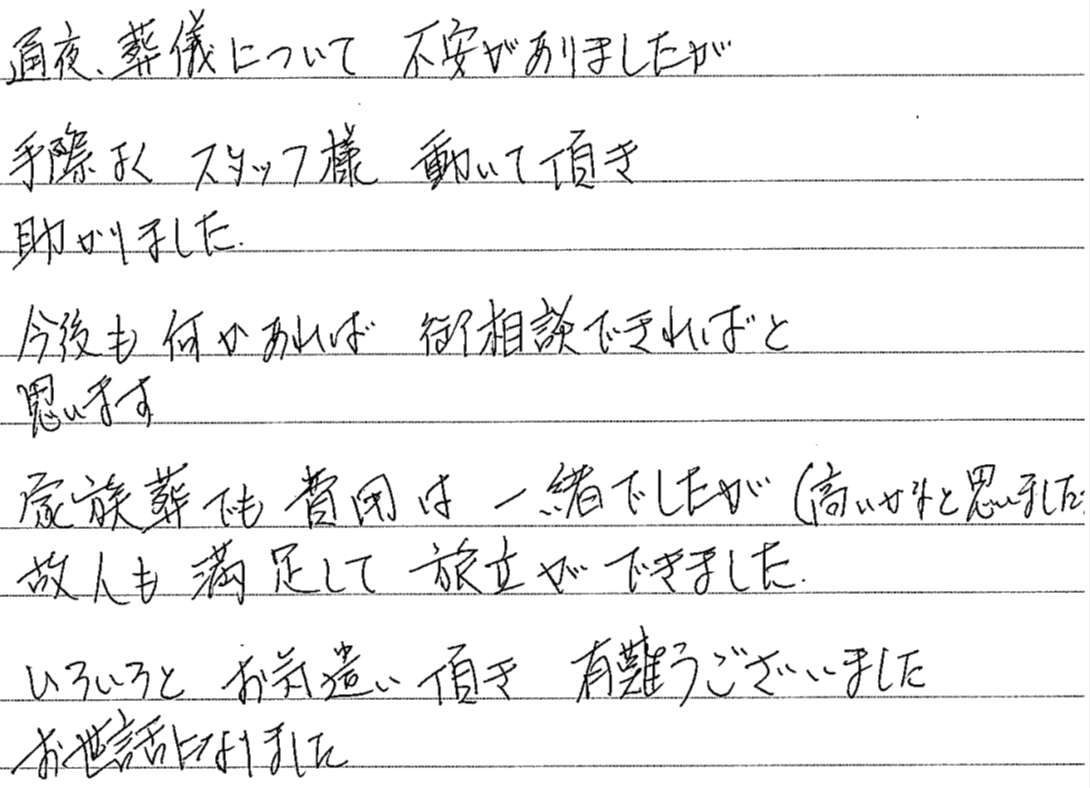 通夜、葬儀について 不安がありましたが
手際よく スタッフ様 動いて頂き
助かりました.
今後も 何かあれば 御相談できればと
思います
家族葬でも 費用は 一緒でしたが (高いかなと思いました.
故人も 満足して 旅立ができました.
いろいろと お気遣い 頂き 有難うございました
お世話になりました